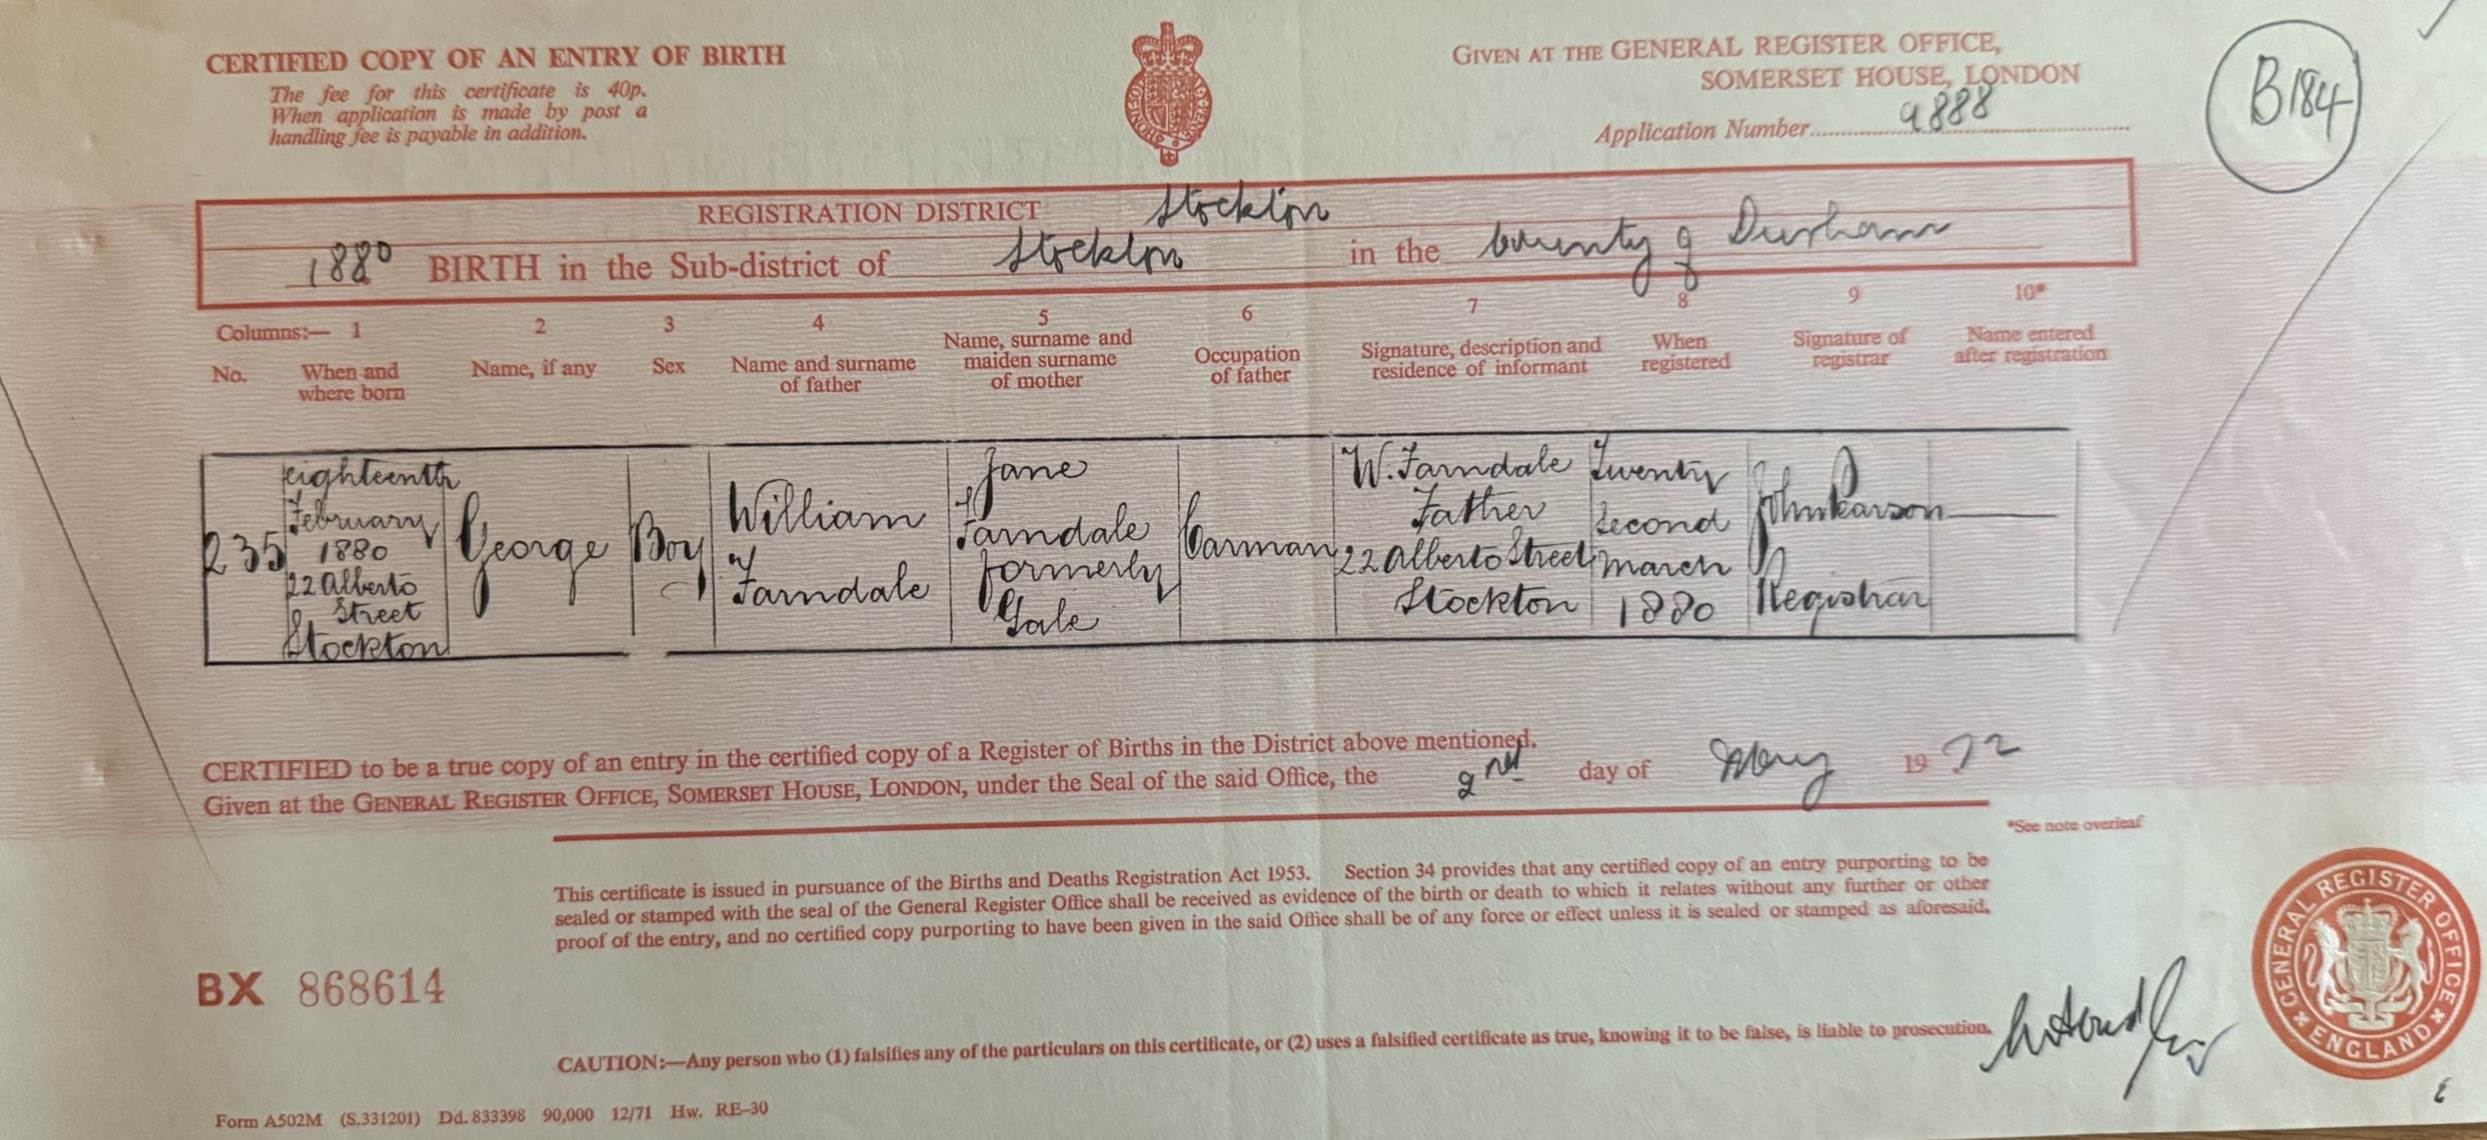 CERTIFIED COPY OF AN ENTRY OF BIRTH
The fee for this certificate is 40p.
When application is made by post a
handling fee is payable in addition.
GIVEN AT THE GENERAL REGISTER OFFICE,
SOMERSET HOUSE, LONDON
Application Number 9888
B184
REGISTRATION DISTRICT Stockton
1880 BIRTH in the Sub-district of Stockton in the County of Durham
Columns:— 1 2 3 4 5 6 7 8 9 10*
No.
When and
where born
Name, if any
Sex
Name and surname
of father
Name, surname and
maiden surname
of mother
Occupation
of father
Signature, description and
residence of informant
When
registered
Signature of
registrar
Name entered
after registration
235
eighteenth
February
1880
22 Alberto
Street
Stockton
George
Boy
William
Farndale
Jane
Farndale
formerly
Gale
Carman
W. Farndale
Father
22 Alberto Street
Stockton
Twenty
second
March
1880
John Pearson
Registrar
CERTIFIED to be a true copy of an entry in the certified copy of a Register of Births in the District above mentioned.
Given at the GENERAL REGISTER OFFICE, SOMERSET HOUSE, LONDON, under the Seal of the said Office, the 2nd day of May 1972
*See note overleaf
This certificate is issued in pursuance of the Births and Deaths Registration Act 1953. Section 34 provides that any certified copy of an entry purporting to be
sealed or stamped with the seal of the General Register Office shall be received as evidence of the birth or death to which it relates without any further or other
proof of the entry, and no certified copy purporting to have been given in the said Office shall be of any force or effect unless it is sealed or stamped as aforesaid.
BX 868614
CAUTION:—Any person who (1) falsifies any of the particulars on this certificate, or (2) uses a falsified certificate as true, knowing it to be false, is liable to prosecution.
GENERAL REGISTER OFFICE
ENGLAND
Form A502M (S.331201) Dd. 833398 90,000 12/71 Hw. RE-30